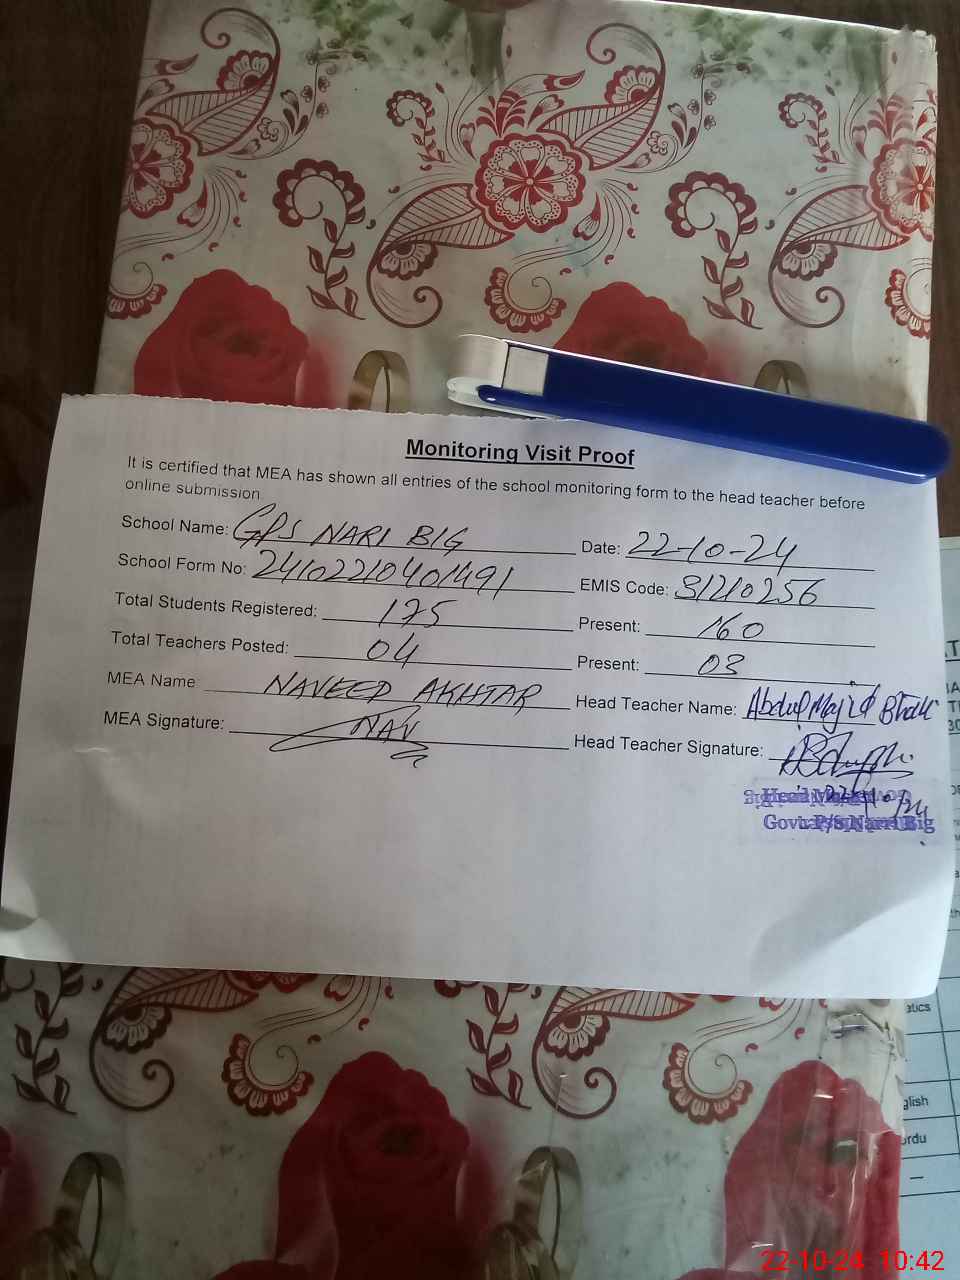 Monitoring Visit Proof
It is certified that MEA has shown all entries of the school monitoring form to the head teacher before
online submission.
School Name: GPS NARI BIG Date: 22-10-24
School Form No: 24102210401491 EMIS Code: 31210256
Total Students Registered: 175 Present: 160
Total Teachers Posted: 04 Present: 03
MEA Name NAVEED AKHTAR Head Teacher Name: Abdul Majid
MEA Signature: NAV Head Teacher Signature:
Head
Govt. P/S Narri Big
atics
glish
urdu
22-10-24 10:42